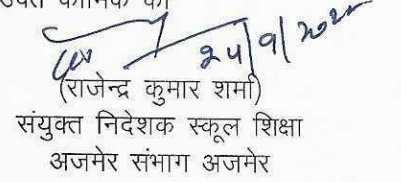 उक्त कार्मिक को
24/9/2022
(राजेन्द्र कुमार शर्मा)
संयुक्त निदेशक स्कूल शिक्षा
अजमेर संभाग अजमेर